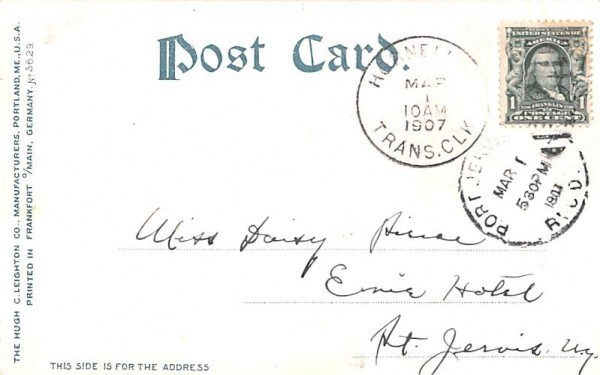 THE HUGH C. LEIGHTON CO., MANUFACTURERS, PORTLAND, ME., U.S.A.
PRINTED IN FRANKFORT O/MAIN, GERMANY. No 3629
Post Card.
MAR
1
10AM
1907
TRANS. CLK
1 FRANKLIN 1
POSTAGE
ONE CENT
PORT JERVIS
MAR 1
530PM
1907
REC'D.
Miss Daisy
Erie Hotel
Pt. Jervis. Ny.
THIS SIDE IS FOR THE ADDRESS